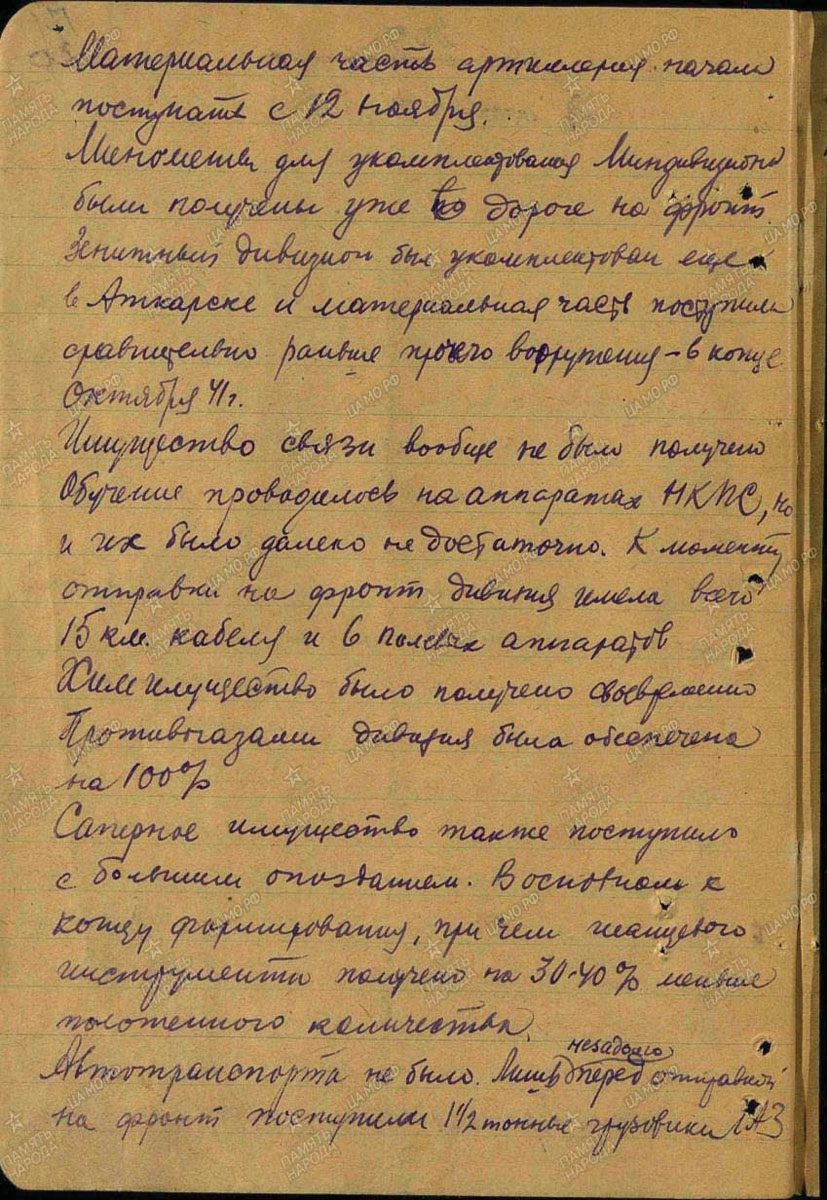 Материальная часть артиллерия начала
поступать с 12 ноября.
Минометы для укомплектования Миндивизиона
были получены уже по дороге на фронт.
Зенитный дивизион был укомплектован еще
в Аткарске и материальная часть поступила
сравнительно раньше вооружения – в конце
Октября 41г.
Имущество связи вообще не было получено
Обучение проводилось на аппаратах НКПС, но
и их было далеко недостаточно. К моменту
отправки на фронт дивизия имела всего
15 км. кабеля и 6 полевых аппаратов
Химимущество было получено своевременно
Противогазами дивизия была обеспечена
на 100%
Саперное имущество также поступило
с большим опозданием. Восновном к
концу формирования, при чем шанцевого
инструмента получено на 30-40% меньше
положенного количества.
незадолго
Автотранспорта не было. Лишь перед отправкой
на фронт поступили 1 1/2 тонные грузовики ГАЗ